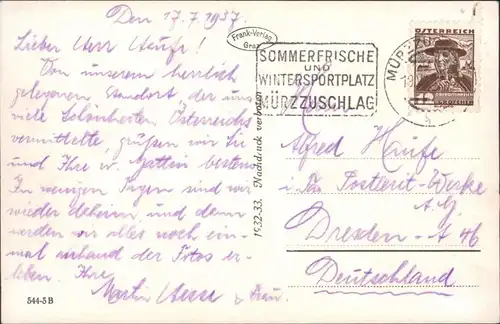 Den 17.7.1937.
Lieber Herr Haufe!
Von unserem herrlich
gelegenen Standort, der uns
viele Schönheiten Österreichs
vermittelte, grüßen wir Sie
und Ihre w. Gattin bestens
In wenigen Tagen sind wir
wieder daheim und dann
werden wir alles noch ein-
mal anhand der Fotos er-
leben. Ihre
Martin Hesse & Frau.
544-5 B
Frank-Verlag
Graz
1932-33. Nachdruck verboten
SOMMERFRISCHE
UND
WINTERSPORTPLATZ
MÜRZZUSCHLAG
ÖSTERREICH
Alfred Haufe
Werke
A.G.
Dresden-A 46
Deutschland